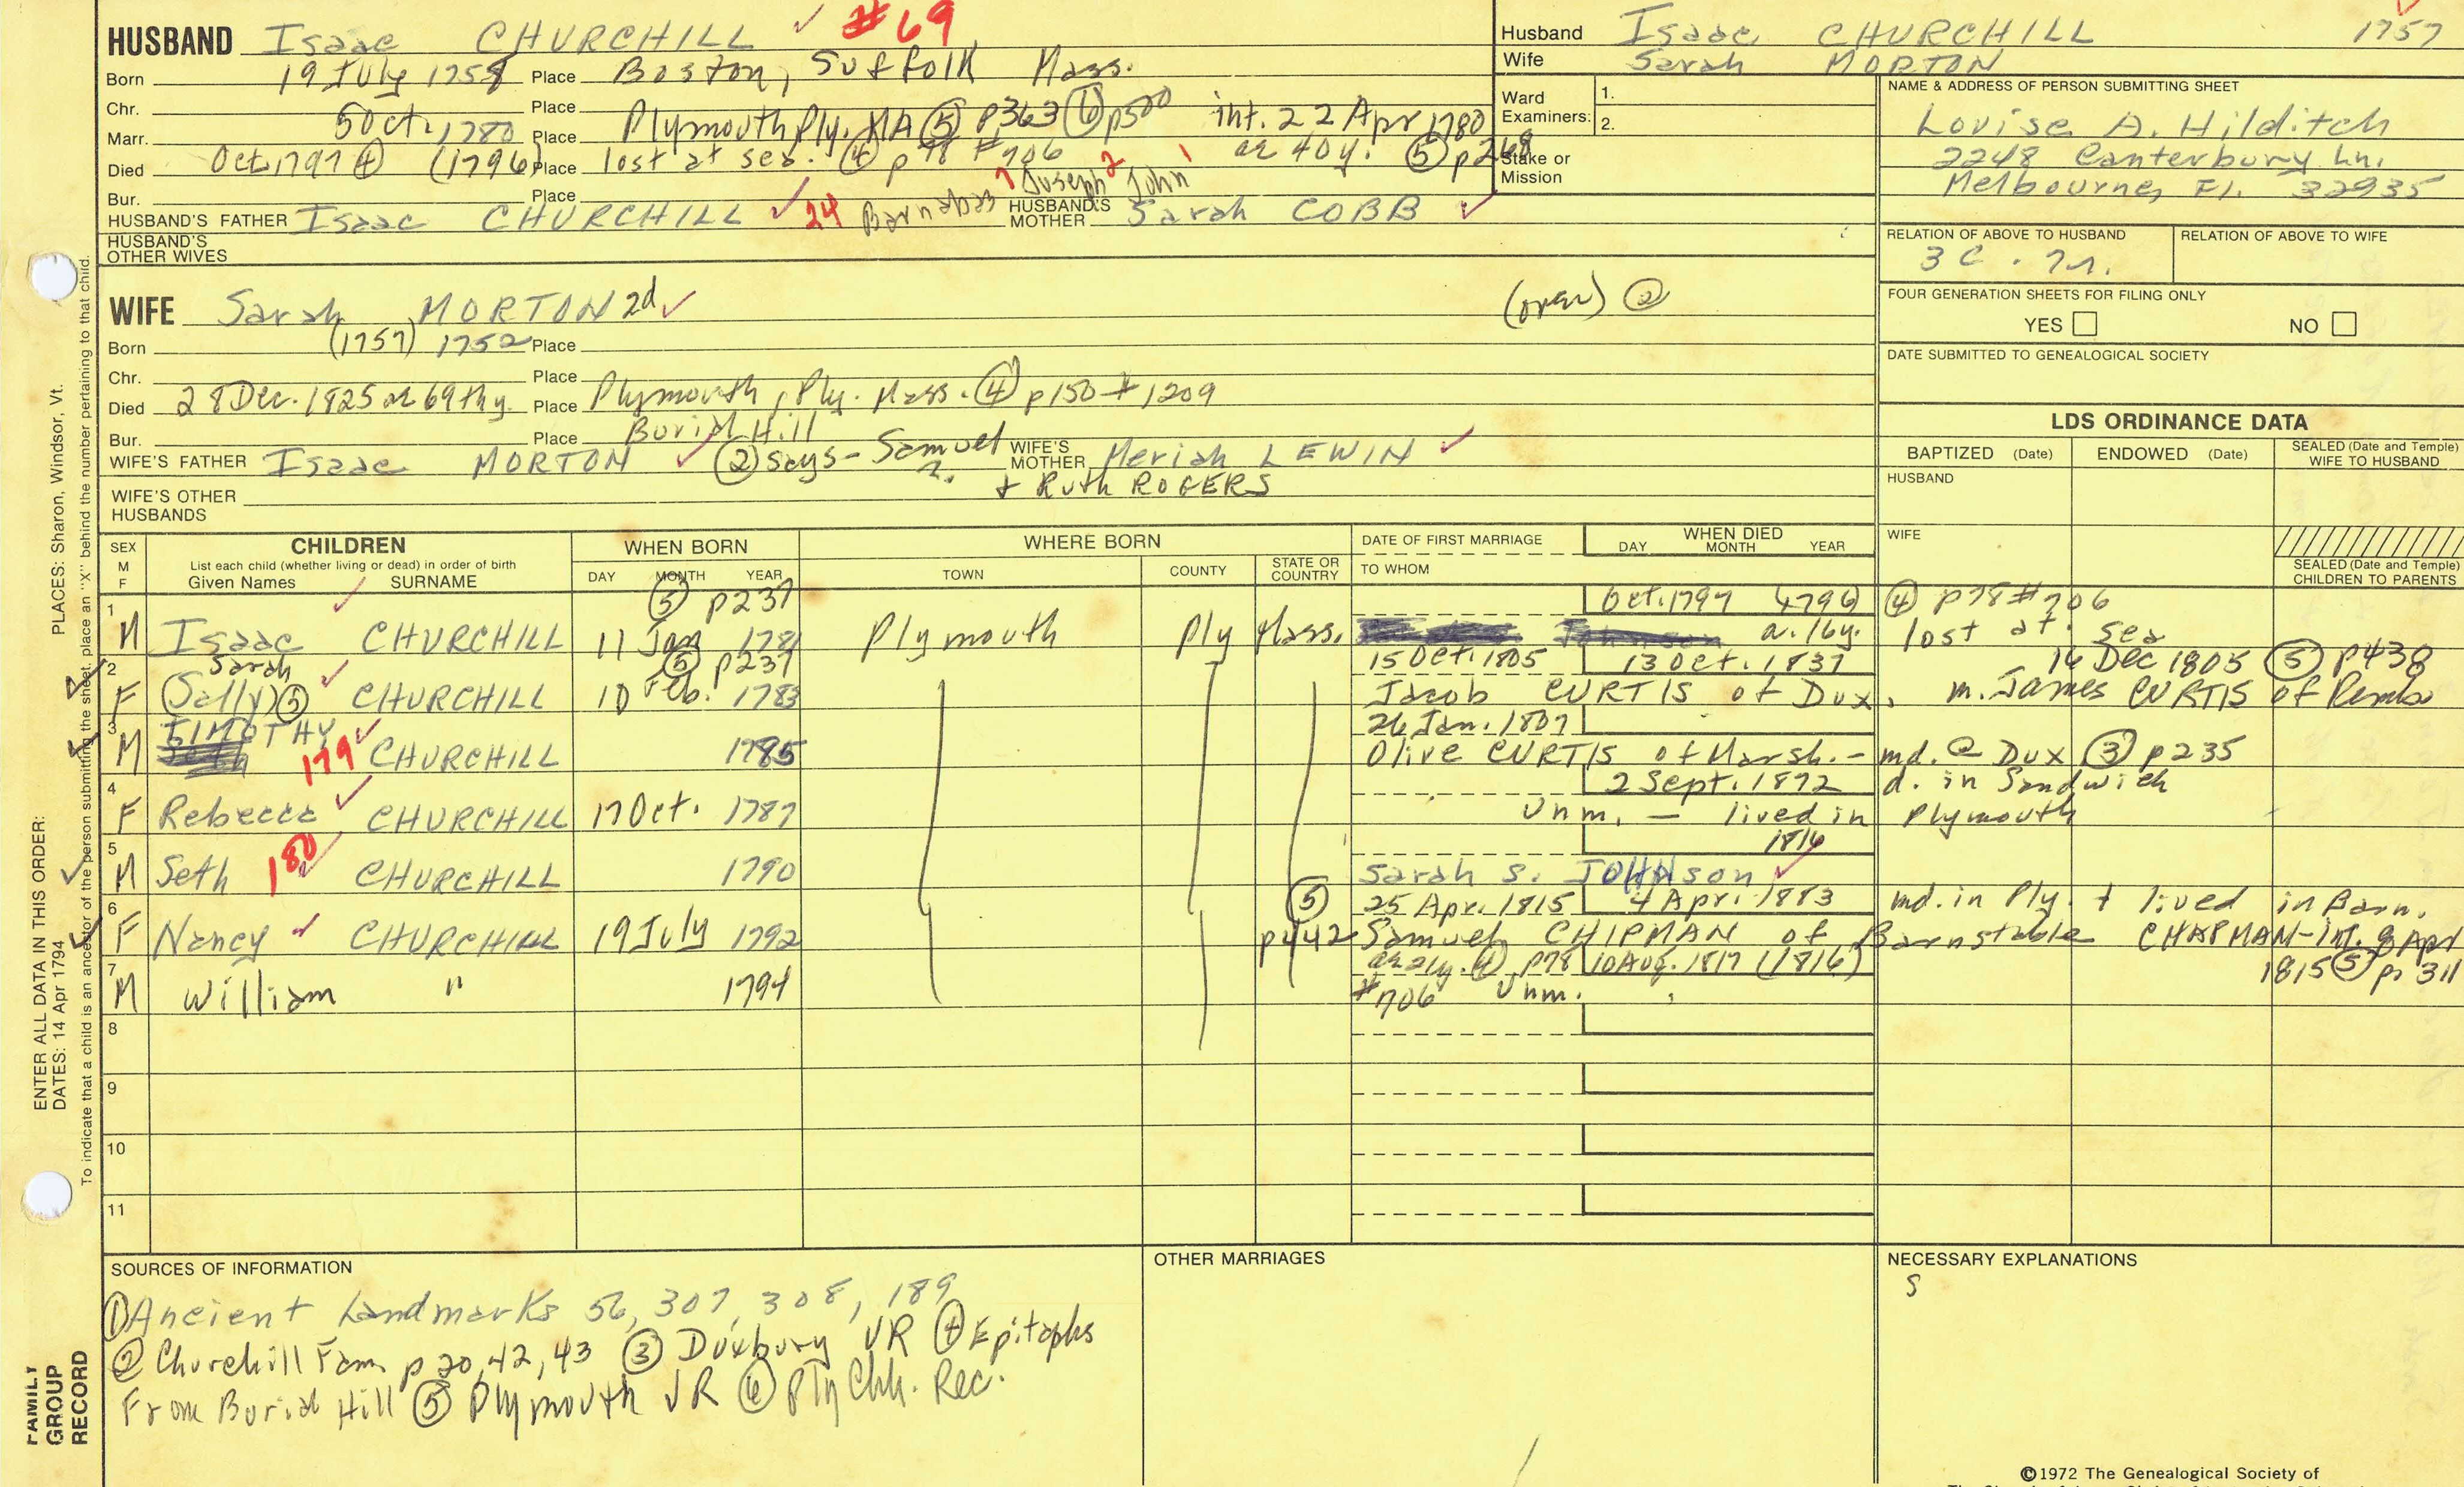 HUSBAND Isaac CHURCHILL ✓ #69
Born 19 July 1758 Place Boston, Suffolk Mass.
Chr. Place
Marr. 5 Oct. 1780 Place Plymouth Ply. MA ⑤ p363 ⑥ p500 int. 22 Apr 1780
Died Oct. 1797 ④ (1796) Place lost at sea. ④ p78 #706 ae 40y. ⑤ p268
Bur. Place
Barnabas Joseph 2 John 1
HUSBAND'S FATHER Isaac CHURCHILL ✓ 24 HUSBAND'S MOTHER Sarah COBB ✓
HUSBAND'S OTHER WIVES
Husband Isaac CHURCHILL 1757
Wife Sarah MORTON
Ward Examiners: 1.
2.
Stake or Mission
NAME & ADDRESS OF PERSON SUBMITTING SHEET
Louise A. Hilditch
2248 Canterbury Ln.
Melbourne, Fl. 32935
RELATION OF ABOVE TO HUSBAND RELATION OF ABOVE TO WIFE
3C.7r.
FOUR GENERATION SHEETS FOR FILING ONLY
YES NO
DATE SUBMITTED TO GENEALOGICAL SOCIETY
WIFE Sarah MORTON 2d ✓ (over) ②
Born (1757) 1752 Place
Chr. Place
Died 28 Dec. 1825 ae 69th y. Place Plymouth, Ply. Mass. ④ p150 #1209
Bur. Place Burial Hill
WIFE'S FATHER Isaac MORTON ✓ ② says - Samuel ? WIFE'S MOTHER Meriah LEWIN ✓
+ Ruth ROGERS
WIFE'S OTHER HUSBANDS
LDS ORDINANCE DATA
BAPTIZED (Date) ENDOWED (Date) SEALED (Date and Temple) WIFE TO HUSBAND
HUSBAND
WIFE
SEALED (Date and Temple) CHILDREN TO PARENTS
SEX M F CHILDREN WHEN BORN WHERE BORN DATE OF FIRST MARRIAGE WHEN DIED
List each child (whether living or dead) in order of birth
Given Names SURNAME DAY MONTH YEAR TOWN COUNTY STATE OR COUNTRY TO WHOM DAY MONTH YEAR
1 ⑤ p237 Oct. 1797 (1796) ④ p78 #706
M Isaac CHURCHILL 11 Jan 1781 Plymouth Ply Mass. a. 16y. lost at sea
2 Sarah ⑤ p237 15 Oct. 1805 13 Oct. 1837 14 Dec 1805 ⑤ p438
F (Sally) ⑤ CHURCHILL 10 Feb. 1783 Jacob CURTIS of Dux. m. James CURTIS of Pembo
3 TIMOTHY 26 Jan. 1807
M 179 CHURCHILL 1785 Olive CURTIS of Marsh. - md. @ Dux ③ p235
4 2 Sept. 1872 d. in Sandwich
F Rebecca CHURCHILL 17 Oct. 1787 Unm. — lived in Plymouth
5 1816
M Seth 180 CHURCHILL 1790 Sarah S. JOHNson ✓
6 ⑤ 25 Apr. 1815 4 Apr. 1883 md. in Ply. + lived in Barn.
F Nancy ✓ CHURCHILL 19 July 1792 p442 Samuel CHIPMAN of Barnstable CHAPMAN - int. 8 Apr 1815 ⑤ p. 311
7 ae 21y. ④ p78 10 Aug. 1817 (1816)
M William " 1794 #706 Unm.
8
9
10
11
SOURCES OF INFORMATION
① Ancient Landmarks 56, 307, 308, 189
② Churchill Fam p20, 42, 43 ③ Duxbury VR ④ Epitaphs
From Burial Hill ⑤ Plymouth VR ⑥ Ply Chh. Rec.
OTHER MARRIAGES
NECESSARY EXPLANATIONS
S
©1972 The Genealogical Society of
ENTER ALL DATA IN THIS ORDER:
PLACES: Sharon, Windsor, Vt.
DATES: 14 Apr 1794
To indicate that a child is an ancestor of the person submitting the sheet, place an "X" behind the number pertaining to that child.
FAMILY GROUP RECORD